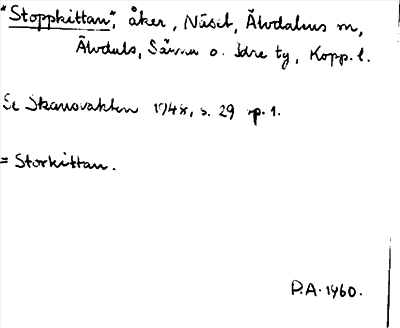 "Stoppkittan", åker, Näset, Älvdalens m,
Älvdals, Särna o. Idre tg, Kopp. l.
Se Skansvakten 1948, s. 29 sp. 1.
= Storkittan.
P.A. 1960.